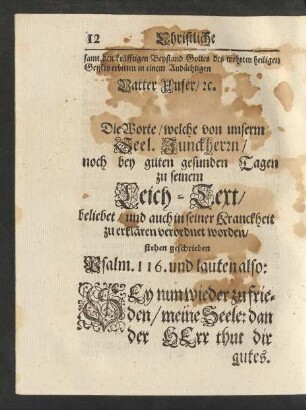 12 Christliche
samt den kräfftigen Beystand Gottes des wehrten heiligen
Geystes erbitten in einem Andächtigen
Vatter Unser / ꝛc.
Die Worte / welche von unserm
Seel. Junckherrn /
noch bey guten gesunden Tagen
zu seinem
Leich = Text /
beliebet / und auch in seiner Kranckheit
zu erklären verordnet worden /
stehen geschrieben
Psalm. 116. und lauten also:
SEy nun wieder zu frie-
den / meine Seele: dan
der HErr thut dir
gutes.